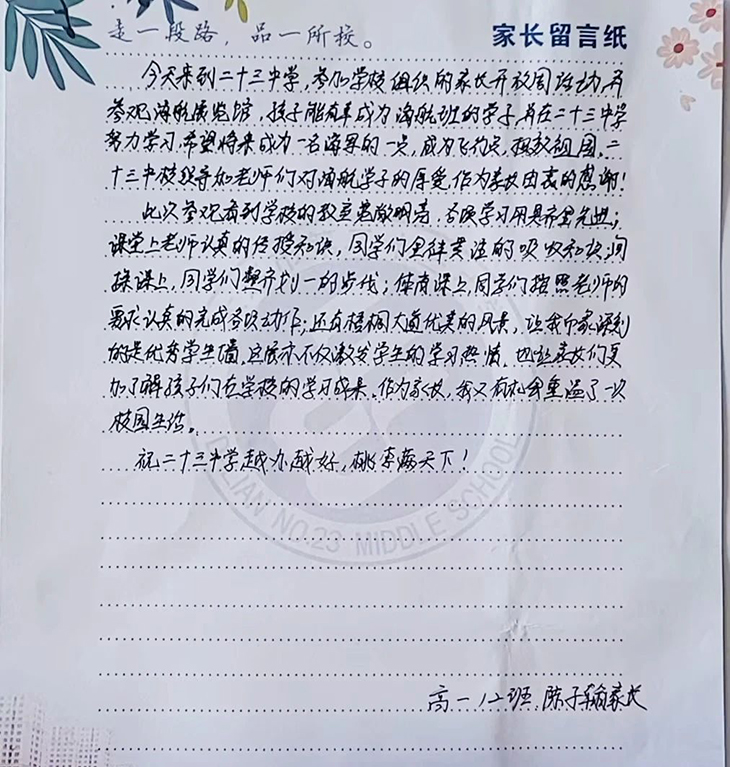 走一段路，品一所校。
家长留言纸
今天来到二十三中学，参加学校组织的家长开放周活动，并
参观海航展览馆，孩子能有幸成为海航班的学子，并在二十三中学
努力学习，希望将来成为一名海军的一员，成为飞行员，报效祖国，二
十三中校领导和老师们对海航学子的厚爱，作为家长由衷的感谢！
此次参观看到学校的教室宽敞明亮，各项学习用具齐全先进；
课堂上老师认真的传授知识，同学们全神贯注的吸收知识，间
操课上，同学们整齐划一的步伐；体育课上，同学们按照老师的
要求认真的完成各项动作；还有梧桐大道优美的风景，让我印象深刻
的是优秀学生墙，这展示不仅激发学生的学习热情，也让家长们更
加了解孩子们在学校的学习成果。作为家长，我又有机会重温了一次
校园生活。
祝二十三中学越办越好，桃李满天下！
DALIAN NO.23 MIDDLE SCHOOL
高一12班 陈子翰家长